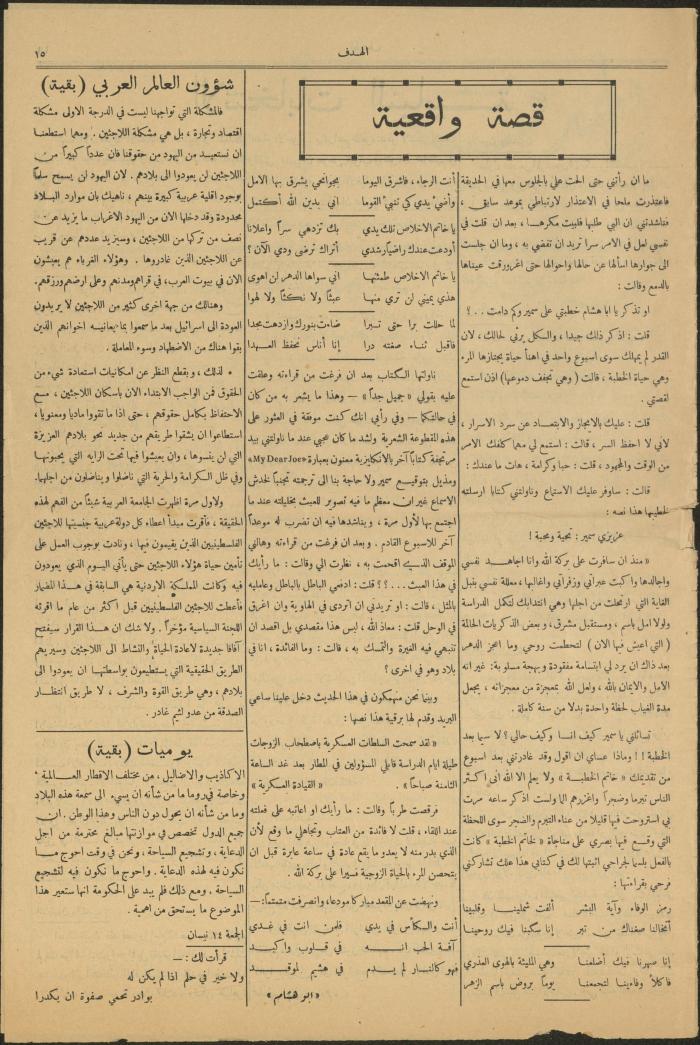 الهدف
١٥
قصة واقعية
ما ان رأتني حتى الحت علي بالجلوس معها في الحديقة
فاعتذرت ملحا في الاعتذار لارتباطي بموعد سابق ،
فناشدتني ان البي طلبها فلبيت مكرها ، بعد ان قلت في
نفسي لعل في الامر سرا تريد ان تفضي به ، وما ان جلست
الى جوارها اسألها عن حالها واحوالها حتى اغرورقت عيناها
بالدمع وقالت :
او تذكر يا ابا هشام خطبتي على سمير وكم دامت . . ؟
قلت : اذكر ذلك جيدا ، والكل يرثي لحالك ، لان
القدر لم يمهلك سوى اسبوع واحد في اهنأ حياة يجتازها المرء
وهي حياة الخطبة ، فقالت ( وهي تجفف دموعها ) اذن استمع
لقصتي .
قلت : عليك بالايجاز والابتعاد عن سرد الاسرار ،
لاني لا احفظ السر ، فقالت : استمع لي مهما كلفك الامر
من الوقت والمجهود ، قلت : حبا وكرامة ، هات ما عندك :
قالت : ساوفر عليك الاستماع وناولتني كتابا ارسلته
لخطيبها هذا نصه :
عزيزي سمير : تحية ومحبة !
« منذ ان سافرت على بركة الله وانا اجاهد نفسي
واجالدها واكبت عبراتي وزفراتي واغالبها ، معللة نفسي بنبل
الغاية التي ارتحلت من اجلها وهي انتدابك لتكمل الدراسة
ولولا امل باسم ، ومستقبل مشرق ، وبعض الذكريات الحالمة
( التي اعيش فيها الان ) لتحطمت روحي وما اعجز الدهر
بعد ذاك ان يرد لي ابتسامة مفقودة وبهجة مسلوبة : غير انه
الامل والايمان بالله ، ولعل الله بمعجزة من معجزاته ، يجعل
مدة الغياب لحظة واحدة بدلا من سنة كاملة .
تسائلني يا سمير كيف انسا وكيف حالي ؟ لا سيما بعد
الخطبة ! ! وماذا عساي ان اقول وقد غادرتني بعد اسبوع
من تقديمك « خاتم الخطبة » ولا يعلم الا الله أني اكثر
الناس تبرما وضجرا واغزرهم الما ولست اذكر ساعة مرت
بي استروحت فيها قليلا من عناء التبرم والضجر سوى اللحظة
التي وقع فيها بصري على مناجاة « لخاتم الخطبة » كانت
بالفعل بلسما لجراحي اثبتها لك في كتابي هذا علك تشاركني
فرحي بقراءتها :
رمز الوفاء وآية البشر    ألفت شملينا وقلبينا
أتخالنا صفناك من تبر    إنا سكبنا فيك روحينا
إنا صهرنا فيك أضلعنا    وهي المليئة بالهوى العذري
فاكلأ وفاءينا لتجمعنا    يوماً بروض باسم الزهر
أنت الرجاء ، فاشرق اليوما    بجوانحي يشرق بها الامل
وأضيء يدي كي تنبيء القوما    اني بدين الله أكتمل
يا خاتم الاخلاص تلك يدي    بك تزدهي سراً واعلانا
أودعت عندك راضياً رشدي    أتراك ترضى ودي الآن ؟
يا خاتم الاخلاص طمئنها    اني سواها الدهر لن اهوى
هذي يميني لن تري منها    عبثاً ولا نكثاً ولا لهوا
لما حللت برا حتى تبرا    ضاءت بنورك وازدهت مجدا
فاقبل ثناء صفته درا    إنا أناس نحفظ العهدا
ناولتها الكتاب بعد ان فرغت من قراءته وعلقت
عليه بقولي « جميل جداً » – وهذا ما يشعر به من كان
في حالتكما – وفي رأيي انك كنت موفقة في العثور على
هذه المقطوعة الشعرية ولشد ما كان عجبي عند ما ناولتني بيد
مرتجفة كتاباً آخر بالانكليزية معنون بعبارة «My Dear Joe»
ومذيل بتوقيع سمير ولا حاجة بنا الى ترجمته تجنباً لخدش
الاسماع غير ان معظم ما فيه تصوير للعبث بخليلته عند ما
اجتمع بها لأول مرة ، ويناشدها فيه ان تضرب له موعداً
آخر للاسبوع القادم . وبعد ان فرغت من قراءته وهالني
الموقف الذي اقحمت به ، نظرت الي وقالت : ما رأيك
في هذا العبث . . . ؟ ؟ قلت : ادفعي الباطل بالباطل وعامليه
بالمثل ، قالت : او تريدني ان اتردى في الهاوية وان اغرق
في الوحل قلت : معاذ الله ، ليس هذا مقصدي بل اقصد ان
تنبهي فيه الغيرة والتمسك به ، قالت : وما الفائدة ، انا في
بلاد وهو في اخرى ؟
وبينما نحن منهمكون في هذا الحديث دخل علينا ساعي
البريد وقدم لها برقية هذا نصها :
« لقد سمحت السلطات العسكرية باصطحاب الزوجات
طيلة ايام الدراسة قابلي المسؤولين في المطار بعد غد الساعة
الثامنة صباحاً » .    « القيادة العسكرية »
فرقصت طربا وقالت : ما رأيك او اعاتبه على فعلته
عند اللقاء ، قلت لا فائدة من العتاب وتجاهلي ما وقع لأن
الذي بدر منه لا يعدو ما يقع عادة في ساعة عابرة قبل ان
يتحصن المرء بالحياة الزوجية فسيرا على بركة الله .
ونهضت عن المقعد مباركا مودعا، وانصرفت متمتما:–
أنت والكأس في يدي    فلمن انت في غدي
آفة الحب انه    في قلوب واكبد
فهو كالنار لم يدم    في هشيم لموقد
« ابو هشام »
شؤون العالم العربي (بقية)
فالمشكلة التي تواجهنا ليست في الدرجة الاولى مشكلة
اقتصاد وتجارة ، بل هي مشكلة اللاجئين . ومهما استطعنا
ان نستعيد من اليهود من حقوقنا فان عدداً كبيراً من
اللاجئين لن يعودوا الى بلادهم . لان اليهود لن يسمح سلماً
بوجود اقلية عربية كبيرة بينهم ، ناهيك بان موارد البلاد
محدودة وقد دخلها الان من اليهود الاغراب ما يزيد عن
نصف من تركها من اللاجئين ، وسيزيد عددهم عن قريب
عن اللاجئين الذين غادروها . وهؤلاء الغرباء هم يعيشون
الان في بيوت العرب، في قراهم ومدنهم وعلى ارضهم ورزقهم.
وهنالك من جهة اخرى كثير من اللاجئين لا يريدون
العودة الى اسرائيل بعد ما سمعوا بما يعانيه اخوانهم الذين
بقوا هناك من الاضطهاد وسوء المعاملة .
• لذلك ، وبقطع النظر عن امكانيات استعادة شيء من
الحقوق فمن الواجب الابتداء الان باسكان اللاجئين ، مع
الاحتفاظ بكامل حقوقهم ، حتى اذا ما تقووا ماديا ومعنويا ،
استطاعوا ان يشقوا طريقهم من جديد نحو بلادهم العزيزة
التي لن ينسوها ، وان يعيشوا فيها تحت الراية التي يحبونها
وفي ظل الكرامة والحرية التي ناضلوا ويناضلون من اجلها.
ولاول مرة اظهرت الجامعة العربية شيئا من الفهم لهذه
الحقيقة ، فأقرت مبدأ اعطاء كل دولة عربية جنسيتها للاجئين
الفلسطينيين الذين يقيمون فيها ، ونادت بوجوب العمل على
تأمين حياة هؤلاء اللاجئين حتى يأتي اليوم الذي يعودون
فيه وكانت المملكة الاردنية هي السابقة في هذا المضمار
فأعطت للاجئين الفلسطينيين قبل اكثر من عام ما اقرته
اللجنة السياسية مؤخراً . ولا شك ان هذا القرار سيفتح
آفاقا جديدة لاعادة الحياة والنشاط الى اللاجئين وسيريهم
الطريق الحقيقية التي يستطيعون بواسطتها ان يعودوا الى
بلادهم ، وهي طريق القوة والشرف ، لا طريق انتظار
الصدقة من عدو لئيم غادر .
يوميات (بقية)
الاكاذيب والاضاليل ، من مختلف الاقطار العالمية •
وخاصة في وما ما من شأنه ان يسيء الى سمعة هذه البلاد
وما من شأنه ان يحول دون الناس وهذا الوطن . ان
جميع الدول تخصص في موازنتها مبالغ محترمة من اجل
الدعاية ، وتشجيع السياحة ، ونحن في وقت احوج ما
نكون فيه لهذه الدعاية . واحوج ما نكون فيه لتشجيع
السياحة . ومع ذلك فلا بد على الحكومة انها ستعير هذا
الموضوع ما يستحق من اهمية .
الجمعة ١٤ نيسان
قرأت لك : –
ولا خير في حلم اذا لم يكن له
بوادر تحمي صفوه ان يكدرا